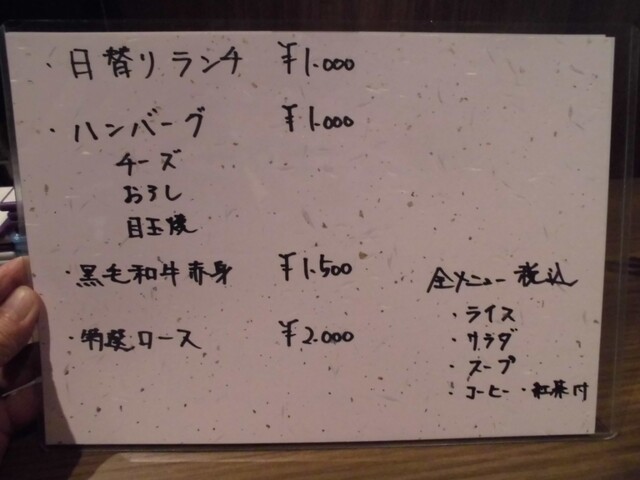 ・日替りランチ ¥1.000
・ハンバーグ ¥1.000
チーズ
おろし
目玉焼
・黒毛和牛赤身 ¥1.500
・特選ロース ¥2.000
全メニュー税込
・ライス
・サラダ
・スープ
・コーヒー・紅茶付